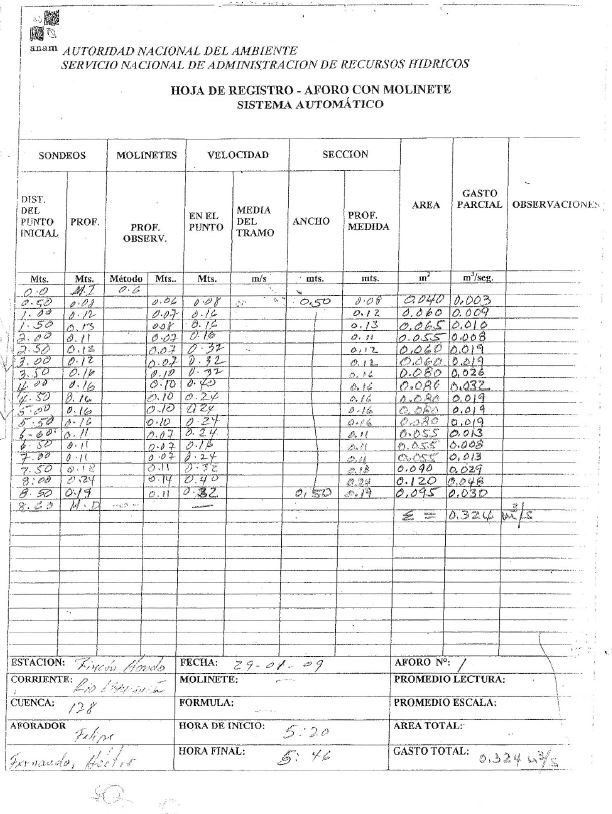 anam AUTORIDAD NACIONAL DEL AMBIENTE
SERVICIO NACIONAL DE ADMINISTRACION DE RECURSOS HIDRICOS
HOJA DE REGISTRO - AFORO CON MOLINETE
SISTEMA AUTOMÁTICO
SONDEOS MOLINETES VELOCIDAD SECCION AREA GASTO PARCIAL OBSERVACIONES
DIST. DEL PUNTO INICIAL PROF. PROF. OBSERV. EN EL PUNTO MEDIA DEL TRAMO ANCHO PROF. MEDIDA
Mts. Mts. Método Mts.. Mts. m/s mts. mts. m² m³/seg.
0.0 M.I 0.6
0.50 0.08 0.06 0.08 0.50 0.08 0.040 0.003
1.00 0.12 0.07 0.16 0.12 0.060 0.009
1.50 0.13 0.08 0.16 0.13 0.065 0.010
2.00 0.11 0.07 0.16 0.11 0.055 0.008
2.50 0.12 0.07 0.32 0.12 0.060 0.019
3.00 0.12 0.07 0.32 0.12 0.060 0.019
3.50 0.16 0.10 0.32 0.16 0.080 0.026
4.00 0.16 0.10 0.40 0.16 0.080 0.032
4.50 0.16 0.10 0.24 0.16 0.080 0.019
5.00 0.16 0.10 0.24 0.16 0.080 0.019
5.50 0.16 0.10 0.24 0.16 0.080 0.019
6.00 0.11 0.07 0.24 0.11 0.055 0.013
6.50 0.11 0.07 0.16 0.11 0.055 0.008
7.00 0.11 0.07 0.24 0.11 0.055 0.013
7.50 0.18 0.11 0.32 0.18 0.090 0.029
8.00 0.24 0.14 0.40 0.24 0.120 0.048
8.50 0.19 0.11 0.32 0.50 0.19 0.095 0.030
8.60 M.D
Σ = 0.324 m³/s
ESTACION: Rincón Hondo FECHA: 29-01-09 AFORO Nº: 1
CORRIENTE: Rio MOLINETE: — PROMEDIO LECTURA:
CUENCA: 128 FORMULA: — PROMEDIO ESCALA:
AFORADOR Felipe HORA DE INICIO: 5:20 AREA TOTAL:
Fernando, HORA FINAL: 5:46 GASTO TOTAL: 0.324 m³/s